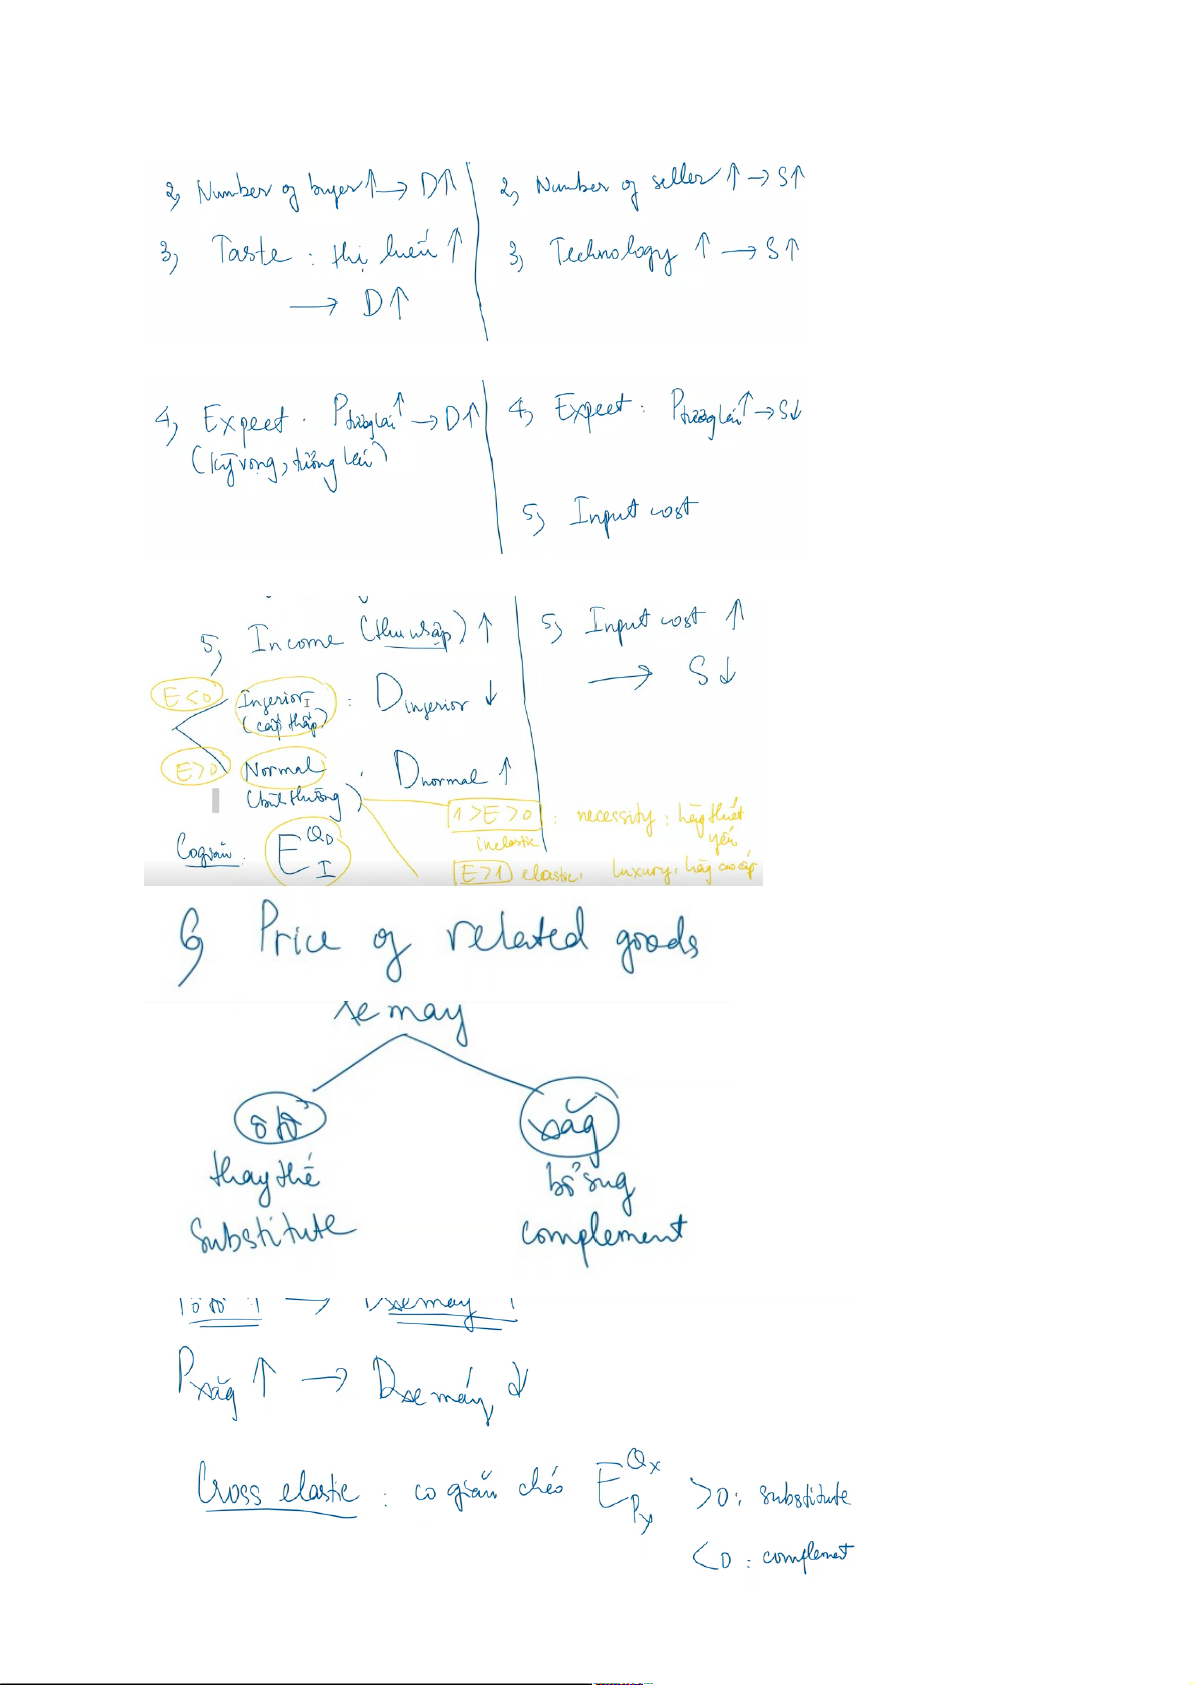 2, Number of buyer ↑ → D↑
2, Number of seller ↑ → S↑
3, Taste : thị hiếu ↑
→ D↑
3, Technology ↑ → S↑
4, Expect . Ptương lai ↑ → D↑
(kỳ vọng, tương lai)
4, Expect : Ptương lai ↑ → S↓
5, Input cost
5, Income (thu nhập) ↑
E<0 Inferior : Dinferior ↓
(cấp thấp)
E>0 Normal : Dnormal ↑
(bình thường)
Co giãn : E QD I
5, Input cost ↑
→ S↓
1>E>0 : necessity : hàng thiết yếu
inelastic
E>1 elastic, luxury, hàng cao cấp
6, Price of related goods
xe may
ô tô
thay thế
substitute
xăng
bổ sung
complement
Pô tô ↑ → Dxe may ↑
Pxăng ↑ → Dxe máy ↓
Cross elastic : co giãn chéo E Qx Py >0 : substitute
<0 : complemet